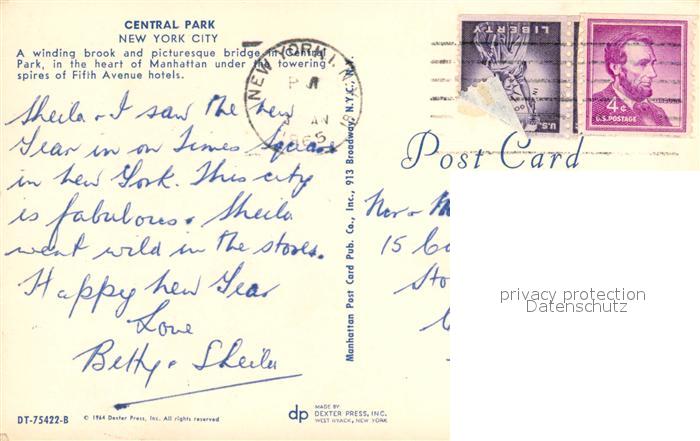 CENTRAL PARK
NEW YORK CITY
A winding brook and picturesque bridge in Central
Park, in the heart of Manhattan under the towering
spires of Fifth Avenue hotels.
Sheila & I saw the new
Year in on Times Square
in New York. This city
is fabulous. Sheila
went wild in the stores.
Happy New Year
Love
Betty & Sheila
DT-75422-B
© 1964 Dexter Press, Inc. All rights reserved
Manhattan Post Card Pub. Co., Inc., 913 Broadway, N.Y.C.
dp
MADE BY
DEXTER PRESS, INC.
WEST NYACK, NEW YORK
NEW YORK 1, N.Y.
JAN
1965
LIBERTY
U.S.
4¢
U.S. POSTAGE
Post Card
15
privacy protection
Datenschutz